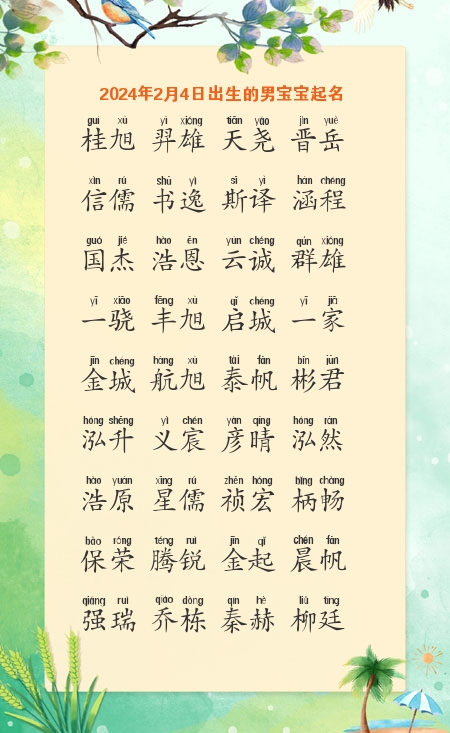 2024年2月4日出生的男宝宝起名
guì xù yì xióng tiān yáo jìn yuè
桂旭 羿雄 天尧 晋岳
xìn rú shū yì sī yì hán chéng
信儒 书逸 斯译 涵程
guó jié hào ēn yún chéng qún xióng
国杰 浩恩 云诚 群雄
yī xiāo fēng xù qǐ chéng yī jiā
一骁 丰旭 启城 一家
jīn chéng háng xù tài fān bīn jūn
金城 航旭 泰帆 彬君
hóng shēng yì chén yàn qíng hóng rán
泓升 义宸 彦晴 泓然
hào yuán xīng rú zhēn hóng bǐng chàng
浩原 星儒 祯宏 柄畅
bǎo róng téng ruì jīn qǐ chén fān
保荣 腾锐 金起 晨帆
qiáng ruì qiáo dòng qín hè liǔ tíng
强瑞 乔栋 秦赫 柳廷